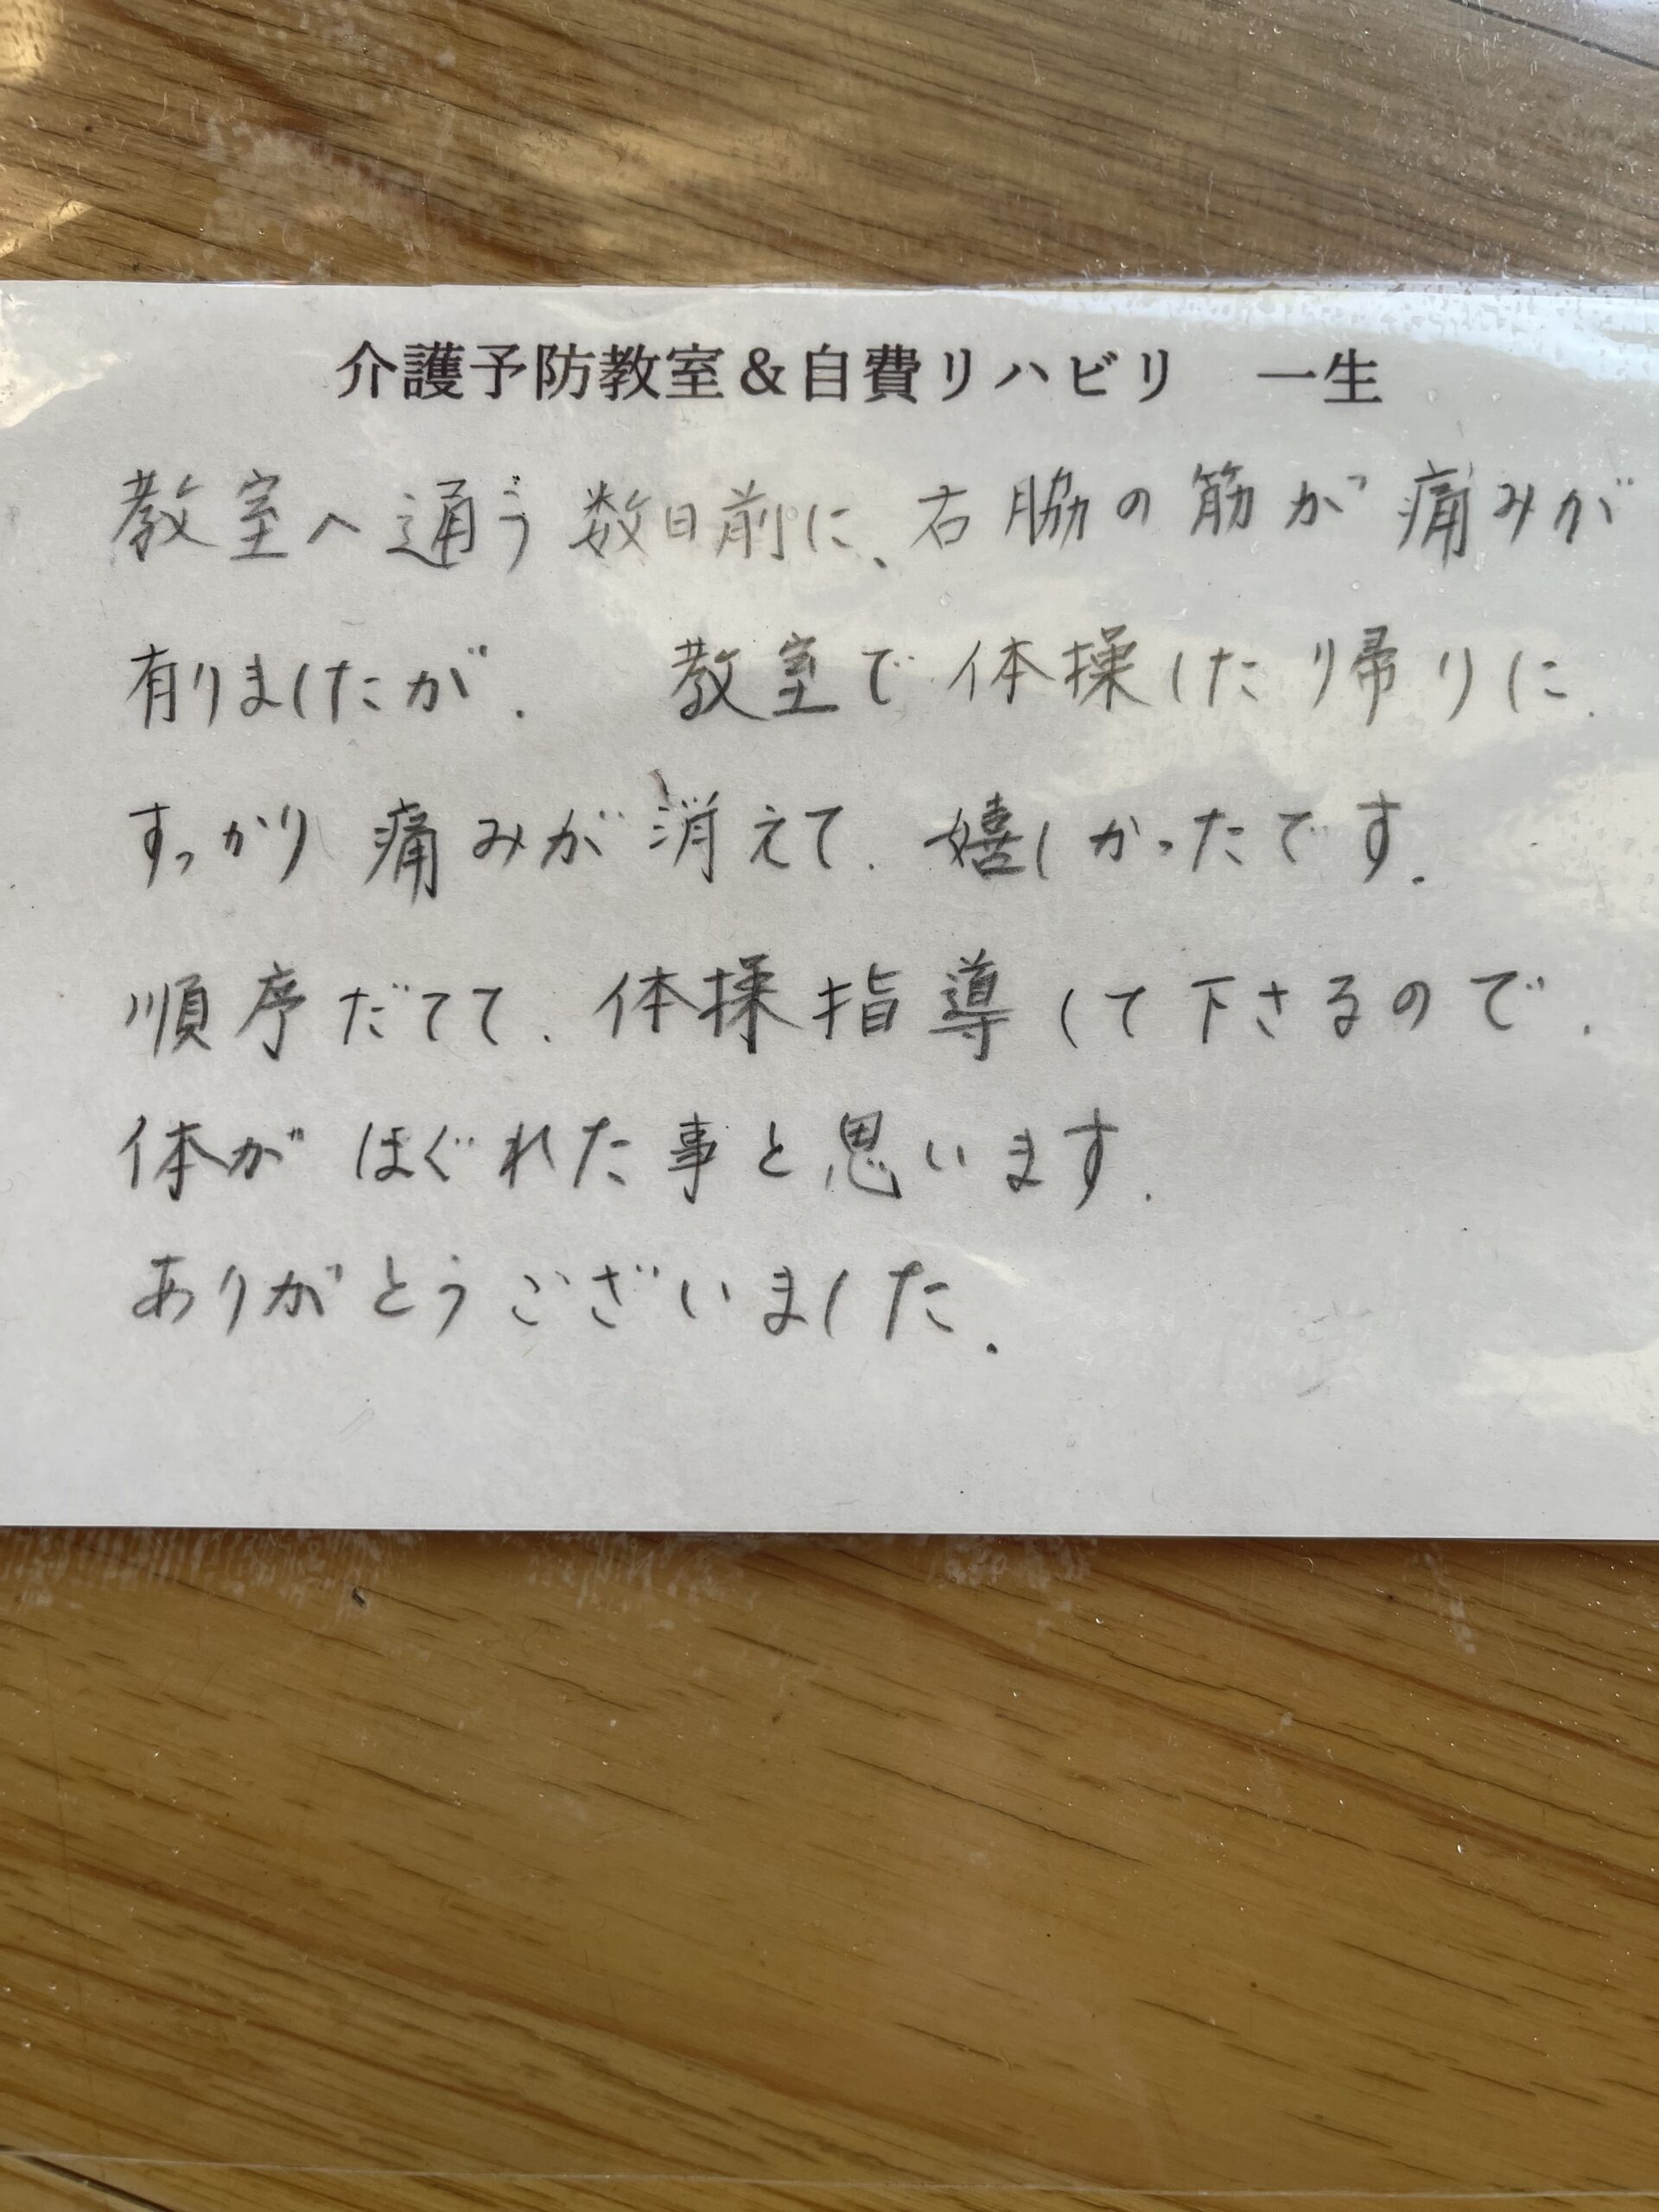 介護予防教室&自費リハビリ　一生
教室へ通う数日前に、右脇の筋が痛みが
有りましたが、　教室で体操した帰りに、
すっかり痛みが消えて、嬉しかったです。
順序だてて、体操指導して下さるので、
体がほぐれた事と思います。
ありがとうございました。